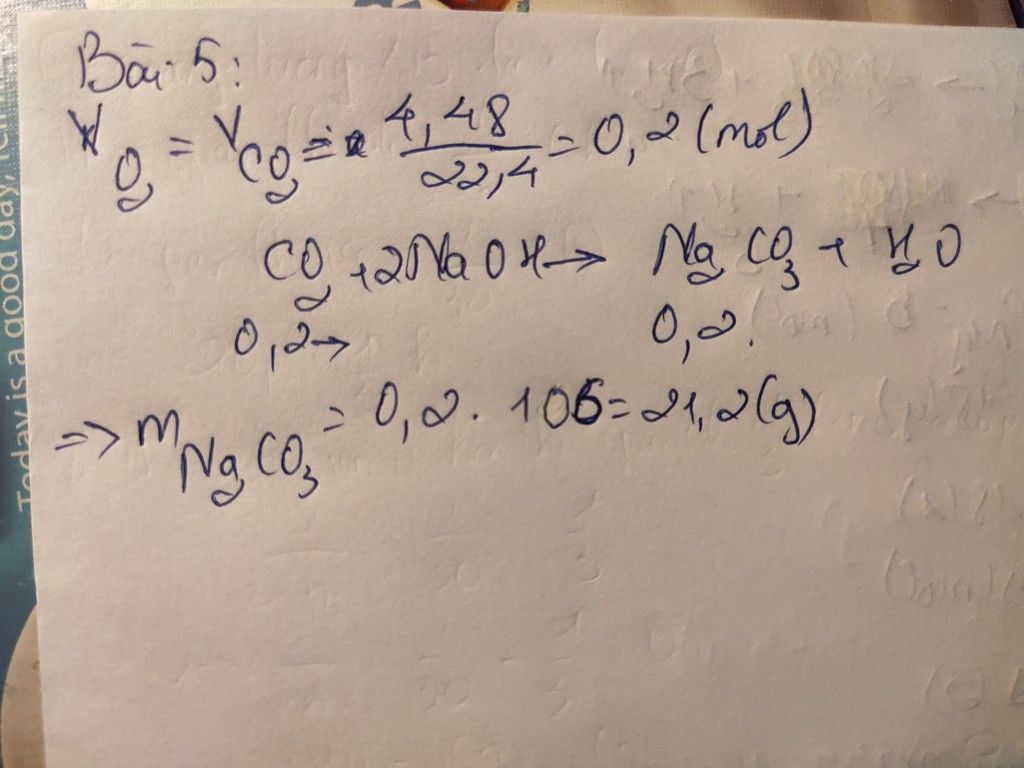 Bài 5:
V O2 = V CO2 = 4,48 / 22,4 = 0,2 (mol)
CO2 + 2NaOH → Na2CO3 + H2O
0,2 → 0,2.
=> m Na2CO3 = 0,2 . 106 = 21,2 (g)
Today is a good day,